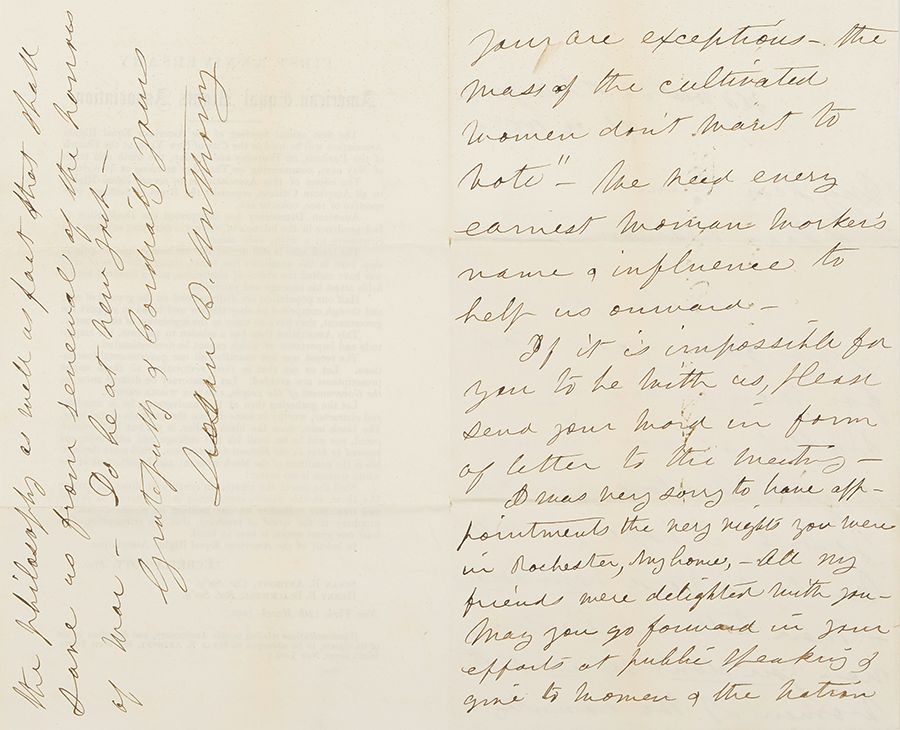 your are exceptions — the
mass of the cultivated
women don't want to
vote" — We need every
earnest woman worker's
name & influence to
help us onward —
If it is impossible for
you to be with us, please
send your word in form
of letter to the meeting —
I was very sorry to have app-
pointments the very nights you were
in Rochester, my home, — All my
friends were delighted with you —
May you go forward in your
efforts at public speaking &
give to women & the Nation
the philosophy as well as fact that shall
save us from renewal of the horrors
of War — Do be at New York —
Gratefully & Cordially yours
Susan B. Anthony